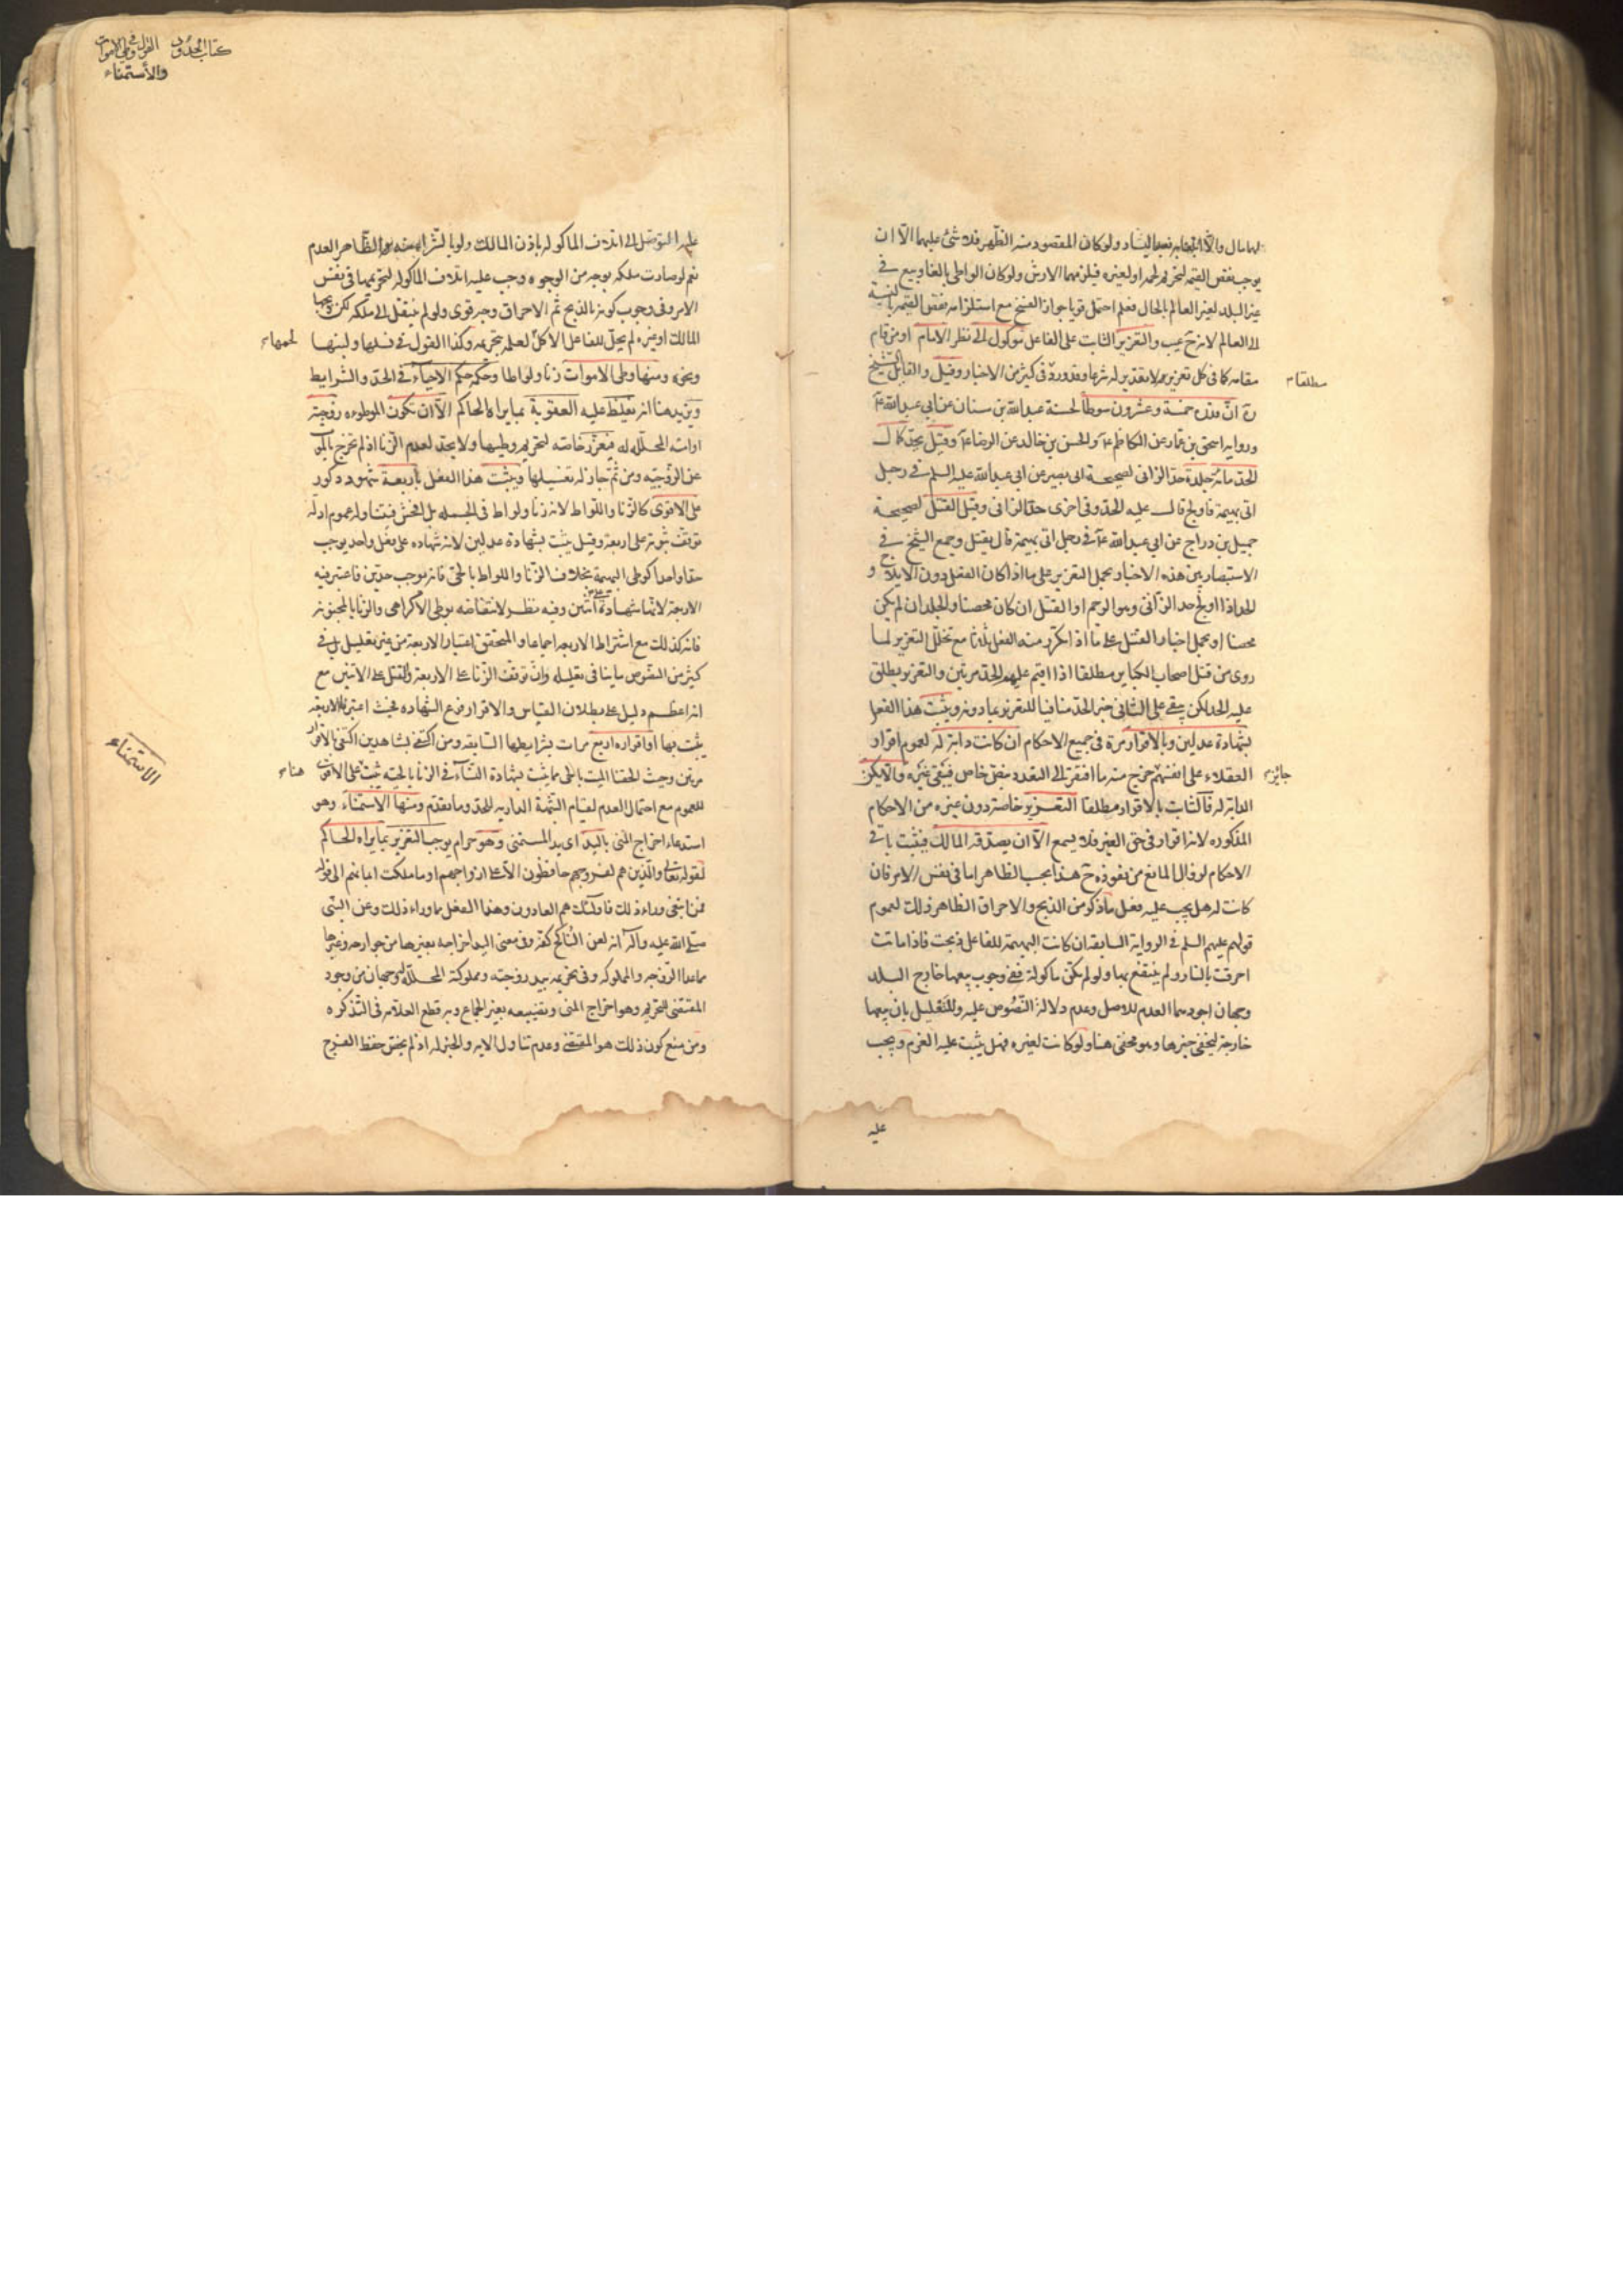 لها مال والا ولو كان المقصود منه الظهر فلا شئ عليهما الا ان
يوجب نقص القيمة لتحريم لحمه او لغيره فيلزمهما الارش ولو كان الواطى بالغا وبيع فى
غير البلد لغير العالم بالحال فعلم احتمل قويا جواز الفسخ مع استلزامه نقص القيمة بالنسبة
الى العالم لانه ح عيب والتعزير الثابت على الفاعل موكول الى نظر الامام او من قام
مقامه كما فى كل تعزير لا تقدير له شرعا وقد ورد فى كثير من الاخبار وقيل والقائل الشيخ
مطلقا
ان قدره خمسة وعشرون سوطا لحسنة عبد الله بن سنان عن ابى عبد الله ع
ورواية اسحق بن عمار عن الكاظم ع والحسن بن خالد عن الرضا ع وقيل يحد كمال
الحد مائة جلدة حد الزانى لصحيحة ابى بصير عن ابى عبد الله عليه السلم فى رجل
اتى بهيمة فاولج قال عليه الحد وفى اخرى حد الزانى وقيل القتل لصحيحة
جميل بن دراج عن ابى عبد الله ع فى رجل اتى بهيمة قال يقتل وجمع الشيخ فى
الاستبصار بين هذه الاخبار بحمل التعزير على ما اذا كان الفعل دون الايلاج و
الحد اذا اولج حد الزانى وهو الرجم او القتل ان كان محصنا والجلد ان لم يكن
محصنا او بحمل اخبار القتل على ما اذا تكرر منه الفعل ثلاثا مع تخلل التعزير لما
روى من قتل اصحاب الكباير مطلقا اذا اقيم عليهم الحد مرتين والتعزير يطلق
عليه الحد لكن يبقى على الثانى خبر الحد منافيا للتعزير بما دونه ويثبت هذا الفعل
بشهادة عدلين وبالاقرار مرة فى جميع الاحكام ان كانت دابة له لعموم اقرار
العقلاء على انفسهم خرج منه ما افتقر الى التعدد بنص خاص فيبقى غيره والا يكن
جائز
الدابة له فالثابت بالاقرار مطلقا التعزير خاصة دون غيره من الاحكام
المذكورة لانه اقرار فى حق الغير فلا يسمع الا ان يصدقه المالك فيثبت باقى
الاحكام لزوال المانع من نفوذه ح هذا بحسب الظاهر اما فى نفس الامر فان
كانت له هل يجب عليه فعل ما ذكر من الذبح والاحراق الظاهر ذلك لعموم
قولهم عليهم السلم فى الرواية السابقة ان كانت البهيمة للفاعل ذبحت فاذا ماتت
احرقت بالنار ولم ينتفع بها ولو لم تكن ماكولة ففى وجوب بيعها خارج البلد
وجهان اجودهما العدم للاصل وعدم دلالة النصوص عليه وللتعليل بان بيعها
خارجه ليخفى خبرها وهو مخفى هنا ولو كانت لغيره فهل يثبت عليه الغرم ويجب
عليه
كتاب الحدود القول فى وطى الاموات
والاستمناء
عليه التوصل الى اتلاف الماكولة باذن المالك ولو بالشراء منه الظاهر العدم
نعم لو صارت ملكه بوجه من الوجوه وجب عليه اتلاف الماكولة لتحريمها فى نفس
الامر وفى وجوب كونه بالذبح ثم الاحراق وجه قوى ولو لم ينتقل الى ملكه لكن ذبحها
المالك او غيره لم يحل للفاعل الاكل لعلمه بتحريمه وكذا القول فى نسلها ولبنها
لحمها
ونحوه ومنها وطى الاموات زنا ولواطا وحكمه حكم الاحياء فى الحد والشرايط
ويزيد هنا انه تغلظ عليه العقوبة بما يراه الحاكم الا ان تكون الموطوءه زوجته
او امته المحللة له فيعزر خاصة لتحريم وطيها ولا يحد لعدم الزنا اذ لم تخرج بالموت
عن الزوجية ومن ثم جاز له تغسيلها ويثبت هذا الفعل باربعة شهود ذكور
على الاقوى كالزنا واللواط لانه زنا ولواط فى الجملة بل افحش فتناوله عموم ادلة
توقف ثبوته على اربعة وقيل يثبت بشهادة عدلين لانه شهاده على فعل واحد يوجب
حدا واحدا كوطى البهيمة بخلاف الزنا واللواط بالحى فانه يوجب حدين فاعتبر فيه
الاربعة لانها شهادة اثنين وفيه نظر لانتقاضه بوطى الاكراهى والزنا بالمجنونة
فانه كذلك مع اشتراط الاربعة اجماعا والمتحقق اعتبار الاربعة من غير تعليل بل فى
كثير من النصوص ما ينافى تعليله وان توقف الزنا على الاربعة والقتل على الاثنين مع
انه اعظم دليل على بطلان القياس والاقرار فرع الشهادة فحيث اعتبرنا الاربعة
يثبت بها او اقراره اربع مرات بشرايطها السابقة ومن اكتفى بشاهدين اكتفى بالاقرار
مرتين وحيث الحقنا الميت بالحى فما يثبت بشهادة النساء فى الزنا بالحية يثبت على الاقوى
هنا
للعموم مع احتمال العدم لقيام الشبهة الدارية للحد وما تقدم ومنها الاستمناء وهو
الاستمناء
استدعاء اخراج المنى باليد اى يد المستمنى وهو حرام يوجب التعزير بما يراه الحاكم
لقوله تعالى والذين هم لفروجهم حافظون الا على ازواجهم او ما ملكت ايمانهم الى قوله
فمن ابتغى وراء ذلك فاولئك هم العادون وهذا الفعل مما وراء ذلك وعن النبى
صلى الله عليه وآله انه لعن الناكح كفه وفى معنى اليد اخراجه بغيرها من جوارحه وغيرها
مما عدا الزوجة والمملوكة وفى تحريمه بيد زوجته ومملوكته المحللة له وجهان من وجود
المقتضى للتحريم وهو اخراج المنى وتضييعه بغير الجماع وبه قطع العلامة فى التذكره
ومن منع كون ذلك هو المقتضى وعدم تناول الاية والخبر له اذ لم يخص حفظ الفرج